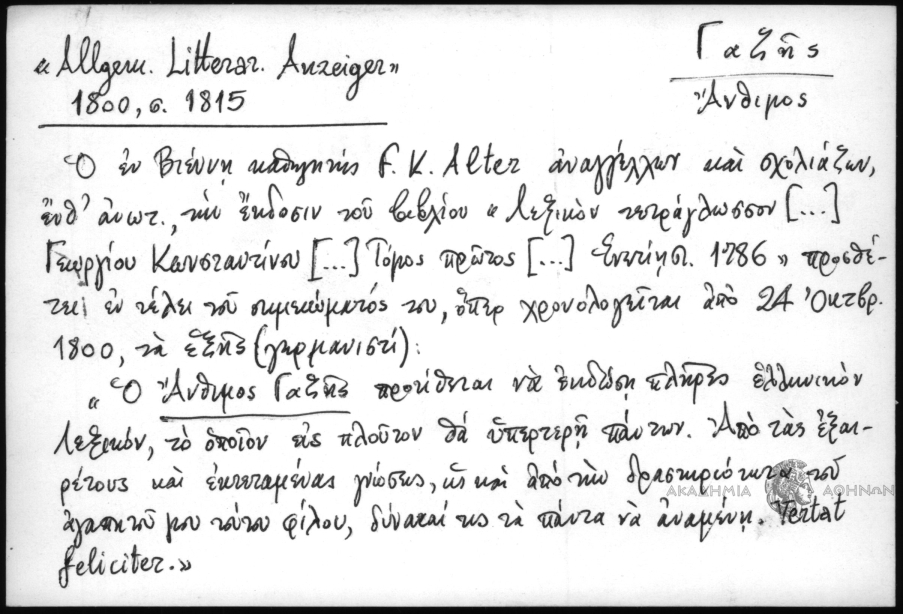 «Allgem. Litterar. Anzeiger»
1800, σ. 1815
Γαζῆς
Ἄνθιμος
Ὁ ἐν Βιέννῃ καθηγητὴς F. K. Alter ἀναγγέλλων καὶ σχολιάζων,
ἔνθ' ἀνωτ., τὴν ἔκδοσιν τοῦ βιβλίου «Λεξικὸν τετράγλωσσον [...]
Γεωργίου Κωνσταντίνου [...] Τόμος πρῶτος [...] Ἐνετίησι. 1786» προσθέ-
τει ἐν τέλει τοῦ σημειώματός του, ὅπερ χρονολογεῖται ἀπὸ 24 Ὀκτβρ.
1800, τὰ ἑξῆς (γερμανιστί):
«Ὁ Ἄνθιμος Γαζῆς προτίθεται νὰ ἐκδώσῃ πλῆρες ἑλληνικὸν
λεξικόν, τὸ ὁποῖον εἰς πλοῦτον θὰ ὑπερτερῇ πάντων. Ἀπὸ τὰς ἐξαι-
ρέτους καὶ ἐκτεταμένας γνώσεις, ὡς καὶ ἀπὸ τὴν δραστηριότητα τοῦ
ἀγαπητοῦ μου τούτου φίλου, δύναταί τις τὰ πάντα νὰ ἀναμένῃ. Vertat
feliciter.»
ΑΚΑΔΗΜΙΑ ΑΘΗΝΩΝ